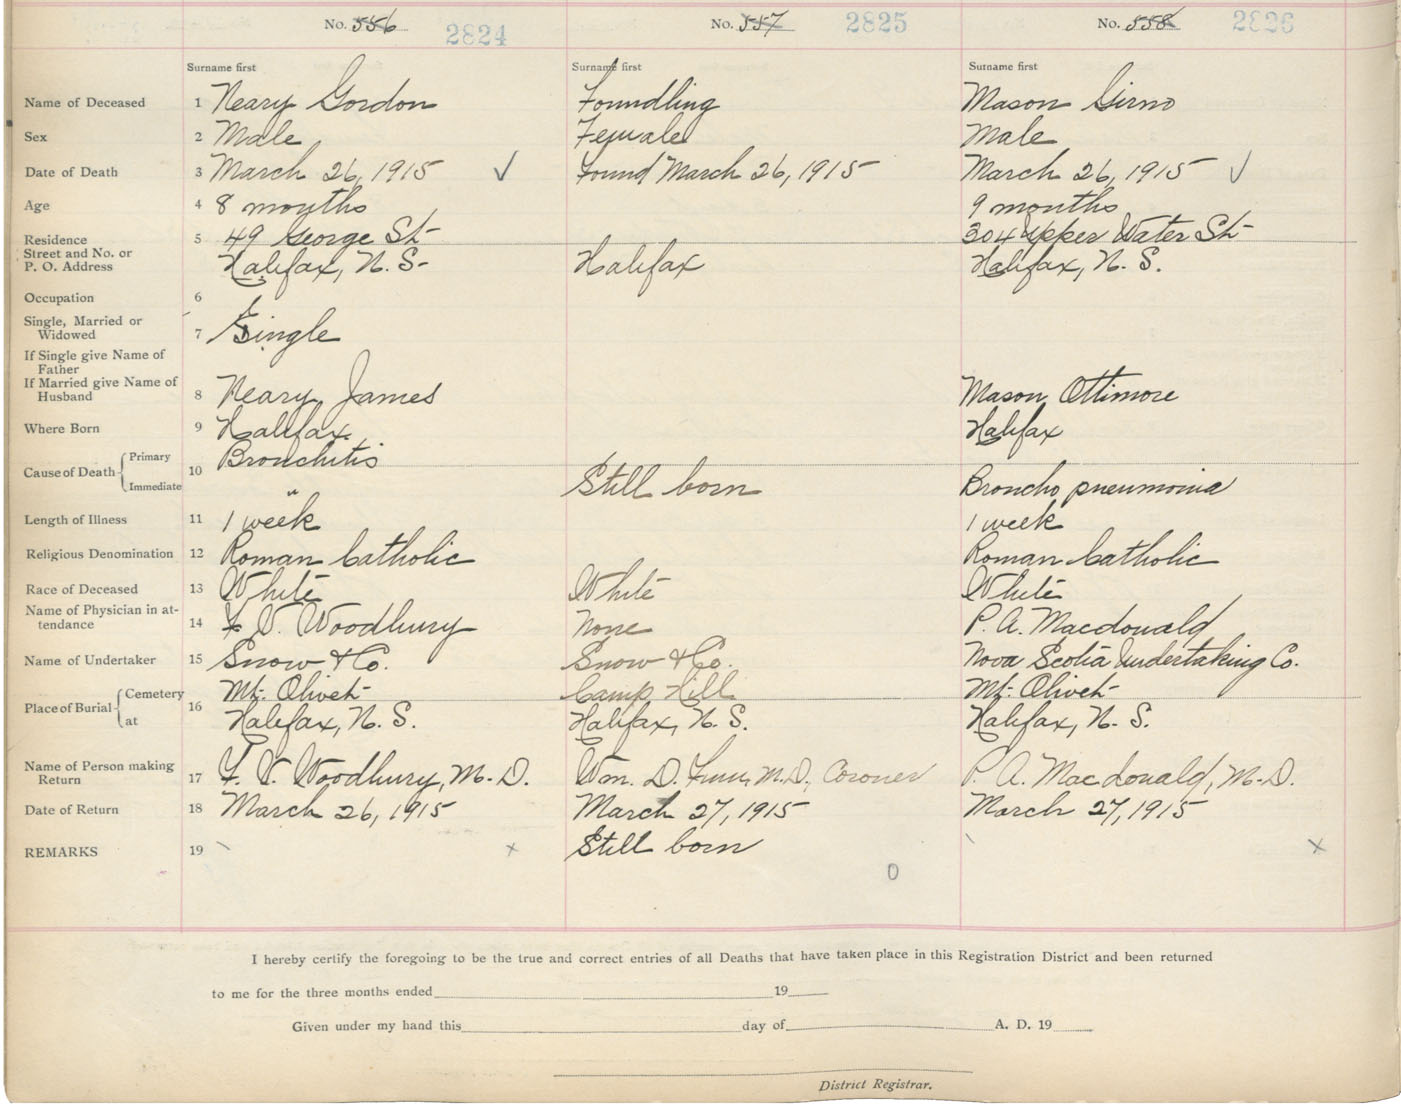 No. 556 2824 No. 557 2825 No. 558 2826
Surname first Surname first Surname first
Name of Deceased 1 Neary Gordon Foundling Mason Girno
Sex 2 Male Female Male
Date of Death 3 March 26, 1915 ✓ Found March 26, 1915 March 26, 1915 ✓
Age 4 8 months 9 months
Residence 5 49 George St- 304 Upper Water St-
Street and No. or
P. O. Address Halifax, N. S- Halifax Halifax, N. S.
Occupation 6
Single, Married or
Widowed 7 Single
If Single give Name of
Father
If Married give Name of
Husband 8 Neary, James Mason, Ottimore
Where Born 9 Halifax Halifax
Cause of Death Primary 10 Bronchitis Still born Broncho pneumonia
Immediate "
Length of Illness 11 1 week 1 week
Religious Denomination 12 Roman Catholic Roman Catholic
Race of Deceased 13 White White White
Name of Physician in at-
tendance 14 F. V. Woodbury None P. A. Macdonald
Name of Undertaker 15 Snow & Co. Snow & Co. Nova Scotia Undertaking Co.
Place of Burial Cemetery 16 Mt. Olivet- Camp Hill Mt. Olivet-
at Halifax, N. S. Halifax, N. S. Halifax, N. S.
Name of Person making
Return 17 F. V. Woodbury, M. D. Wm. D. M. D., Coroner P. A. Macdonald, M. D.
Date of Return 18 March 26, 1915 March 27, 1915 March 27, 1915
REMARKS 19 x Still born x
0
I hereby certify the foregoing to be the true and correct entries of all Deaths that have taken place in this Registration District and been returned
to me for the three months ended 19
Given under my hand this day of A. D. 19
District Registrar.